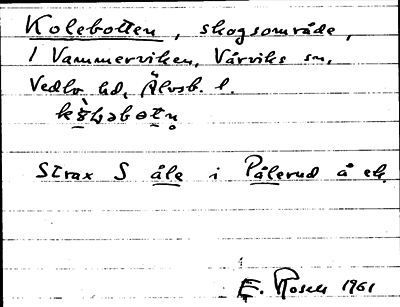 Kolebotten, skogsområde,
1 Vammerviken, Vårviks sn,
Vedbo hd, Älvsb. l.
Strax S åle i Pålerud å ek.
E. Rosell 1961